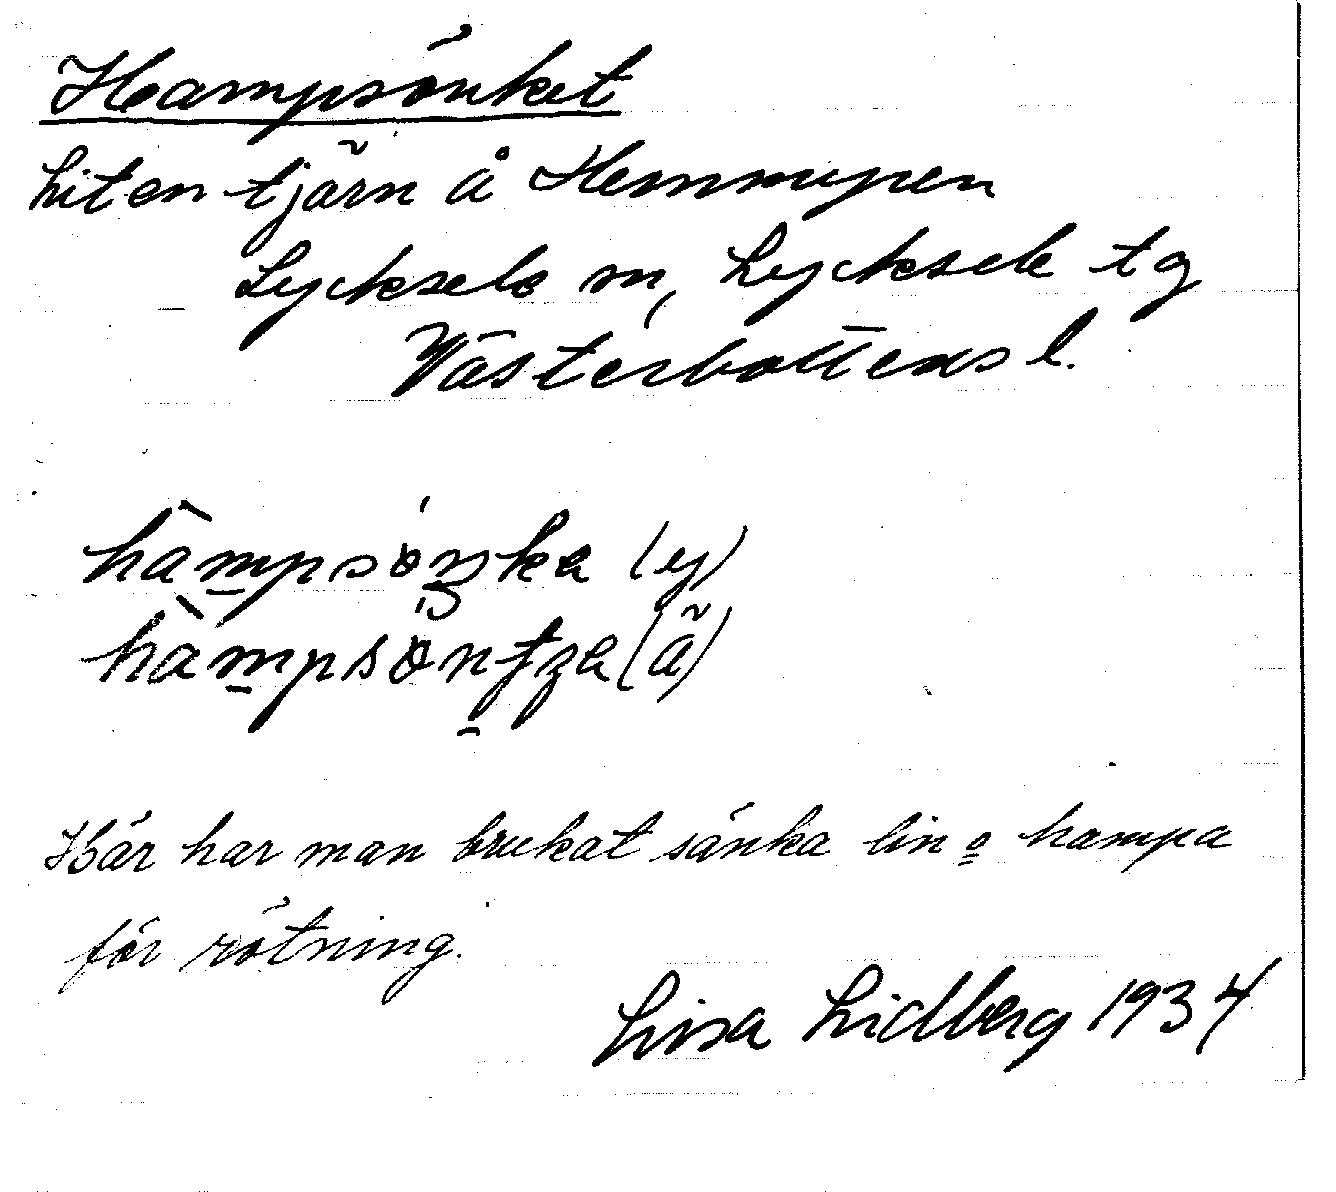 Hampsönket
Liten tjärn å Hemmypen
Lycksele m, Lycksele tg
Västerbottens l.
hàmpsö́ŋka (y)
(ä)
Här har man brukat sänka lin o hampa
för rötning.
Lisa Lidberg 1934